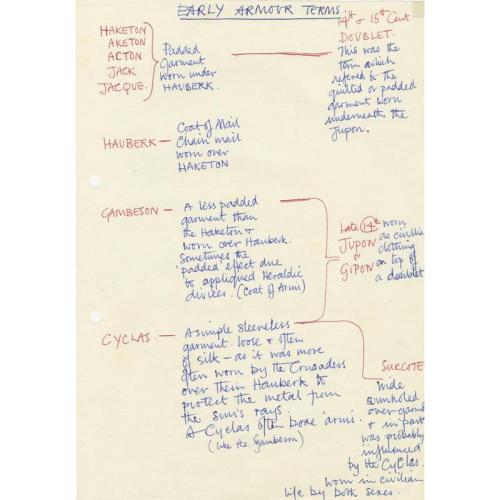 EARLY ARMOUR TERMS
HAKETON
AKETON
ACTON
JACK
JACQUE.
Padded
Garment
worn under
HAUBERK.
14th & 15th Cent
DOUBLET.
This was the
term which
refered to the
quilted or padded
garment worn
underneath the
Jupon.
HAUBERK —
Coat of Mail
Chain mail
worn over
HAKETON
GAMBESON —
A less padded
garment than
the Haketon &
worn over Hauberk.
Sometimes the
'padded' effect due
to appliqued Heraldic
devices. (Coat of Arms)
Late 14th
JUPON
or
GIPON
worn
as civilian
clothing
on top of
a doublet
CYCLAS —
A simple sleeveless
garment. loose & often
of silk — as it was more
often worn by the Crusaders
over their Hauberk to
protect the metal from
the sun's rays.
A Cyclas often bore 'arms'.
(like the Gambeson)
SURCOTE
wide
armholed
over garm
& in part
was probably
influenced
by the Cyclas.
worn in civilian
life by both sexes.